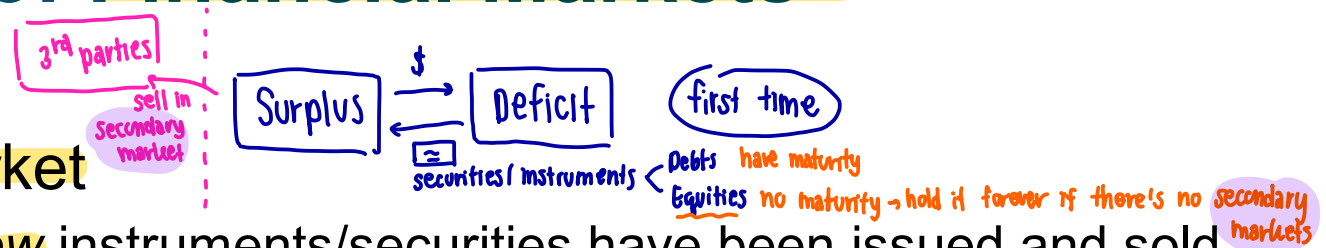 of Financial Markets
3rd parties
sell in
secondary
market
Surplus
$
Deficit
first time
securities/instruments
Debts have maturity
Equities no maturity → hold it forever if there's no secondary
markets
ket
w instruments/securities have been issued and sold